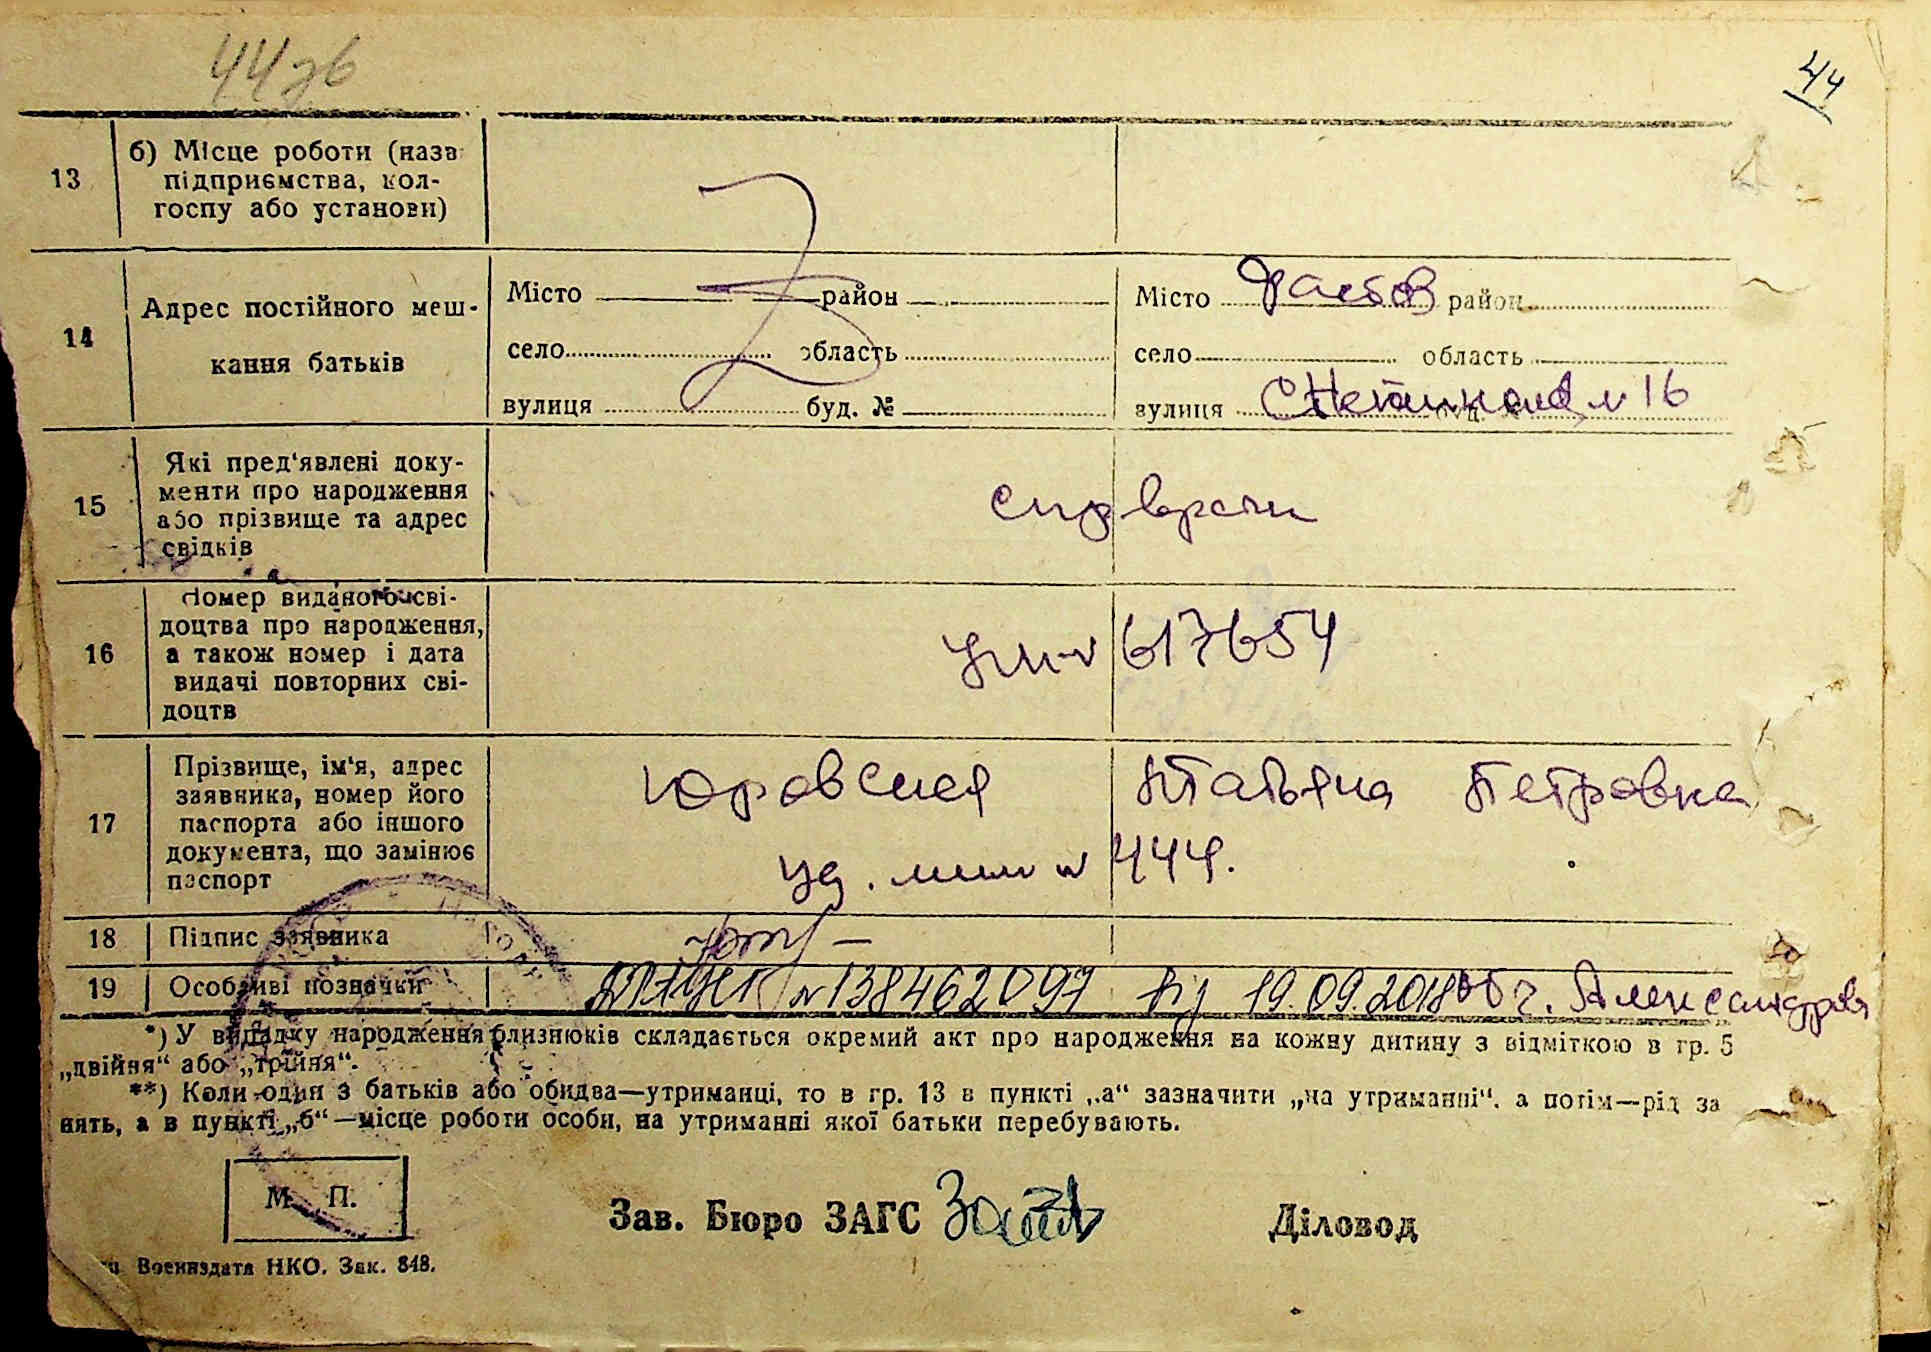 44зв
44
13
б) Місце роботи (назв
підприємства, кол-
госпу або установи)
14
Адрес постійного меш-
кання батьків
Місто район
село область
вулиця буд. №
Місто Фастов район
село область
вулиця № 16
15
Які пред'явлені доку-
менти про народження
або прізвище та адрес
свідків
спр врачи
16
Номер виданого сві-
доцтва про народження,
а також номер і дата
видачі повторних сві-
доцтв
№ 617654
17
Прізвище, ім'я, адрес
заявника, номер його
паспорта або іншого
документа, що замінює
паспорт
Юровская Татьяна Петровна
уд. личн № 444.
18
Підпис заявника
19
Особливі позначки
№138462097 від 19.09.2018
*) У випадку народження близнюків складається окремий акт про народження на кожну дитину з відміткою в гр. 5
„двійня“ або „трійня“.
**) Коли один з батьків або обидва—утриманці, то в гр. 13 в пункті „а“ зазначити „на утриманні“, а потім—рід за
нять, а в пункті „б“—місце роботи особи, на утриманні якої батьки перебувають.
М. П.
Зав. Бюро ЗАГС
Діловод
Воениздата НКО. Зак. 848.